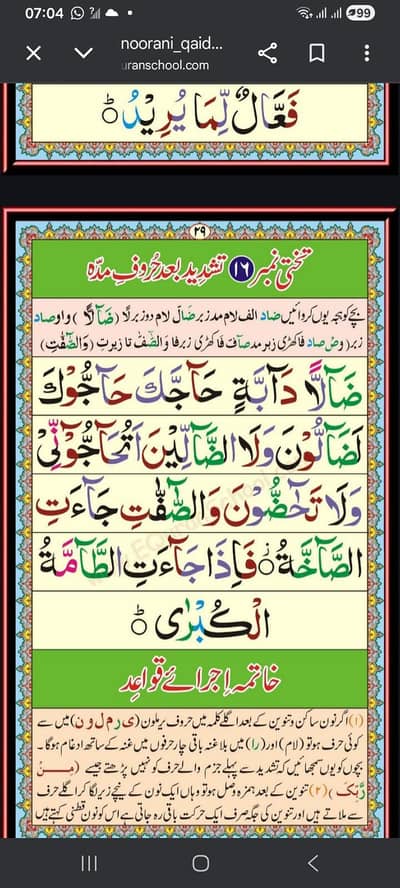 07:04
99
noorani_qaid...
uranschool.com
فَعَّالٌ لِّمَا يُرِيْدُ ؕ
٢٩
تختی نمبر ١٦ تشدید بعد حُروفِ مدّہ
بچے کو ہجہ یوں کروائیں ضاد الف لام مد زبر ضَآلّ لام دو زبر لًّا (ضَآلًّا) واو صاد
زبر (وَصْ صاد فا کھڑی زبر مد صآف فا کھڑی زبر فا وَالصّٰٓفّٰ تا زیر تِ (وَالصّٰٓفّٰتِ)
ضَآلًّا دَآبَّةٍ حَآجَّكَ حَآجُّوْكَ
لَضَآلُّوْنَ وَلَا الضَّآلِّيْنَ اَتُحَآجُّوْٓنِّیْ
وَلَا تَحٰٓضُّوْنَ وَالصّٰٓفّٰتِ جَآءَتِ
الصَّآخَّةُ فَاِذَا جَآءَتِ الطَّآمَّةُ
الْكُبْرٰى ؕ
خاتمہ اجرائے قواعد
(۱) اگر نون ساکن و تنوین کے بعد اگلے کلمہ میں حروف یرملون (ی ر م ل و ن) میں سے
کوئی حرف ہو تو (لام) اور (را) میں بلا غنہ باقی چار حرفوں میں غنہ کے ساتھ ادغام ہوگا۔
بچوں کو یوں سمجھائیں کہ تشدید سے پہلے جزم والے حرف کو نہیں پڑھتے جیسے (مِنْ
رَّبِّكَ) (۲) تنوین کے بعد ہمزہ وصل ہو تو وہاں ایک نون کے نیچے زیر لگا کر اگلے حرف
سے ملاتے ہیں اور تنوین کی جگہ صرف ایک حرکت باقی رہ جاتی ہے اس کو نون قطنی کہتے ہیں